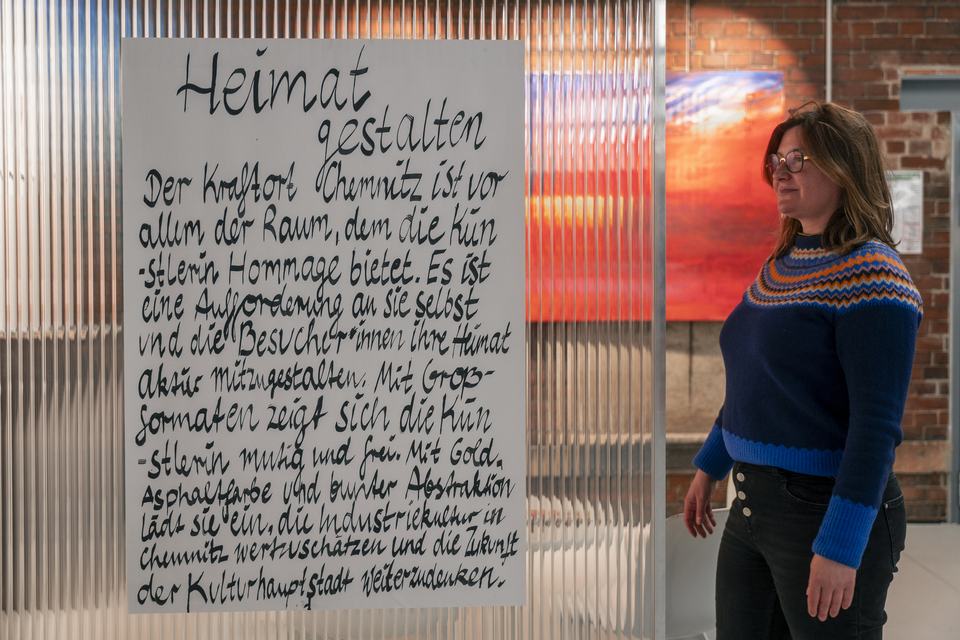 Heimat
gestalten
Der Kraftort Chemnitz ist vor
allem der Raum, dem die Kün
-stlerin Hommage bietet. Es ist
eine Aufforderung an sie selbst
und die Besucher*innen ihre Heimat
aktiv mitzugestalten. Mit Groß-
formaten zeigt sich die Kün
-stlerin mutig und frei. Mit Gold,
Asphaltfarbe und bunter Abstraktion
lädt sie ein, die Industriekultur in
Chemnitz wertzuschätzen und die Zukunft
der Kulturhauptstadt weiterzudenken.